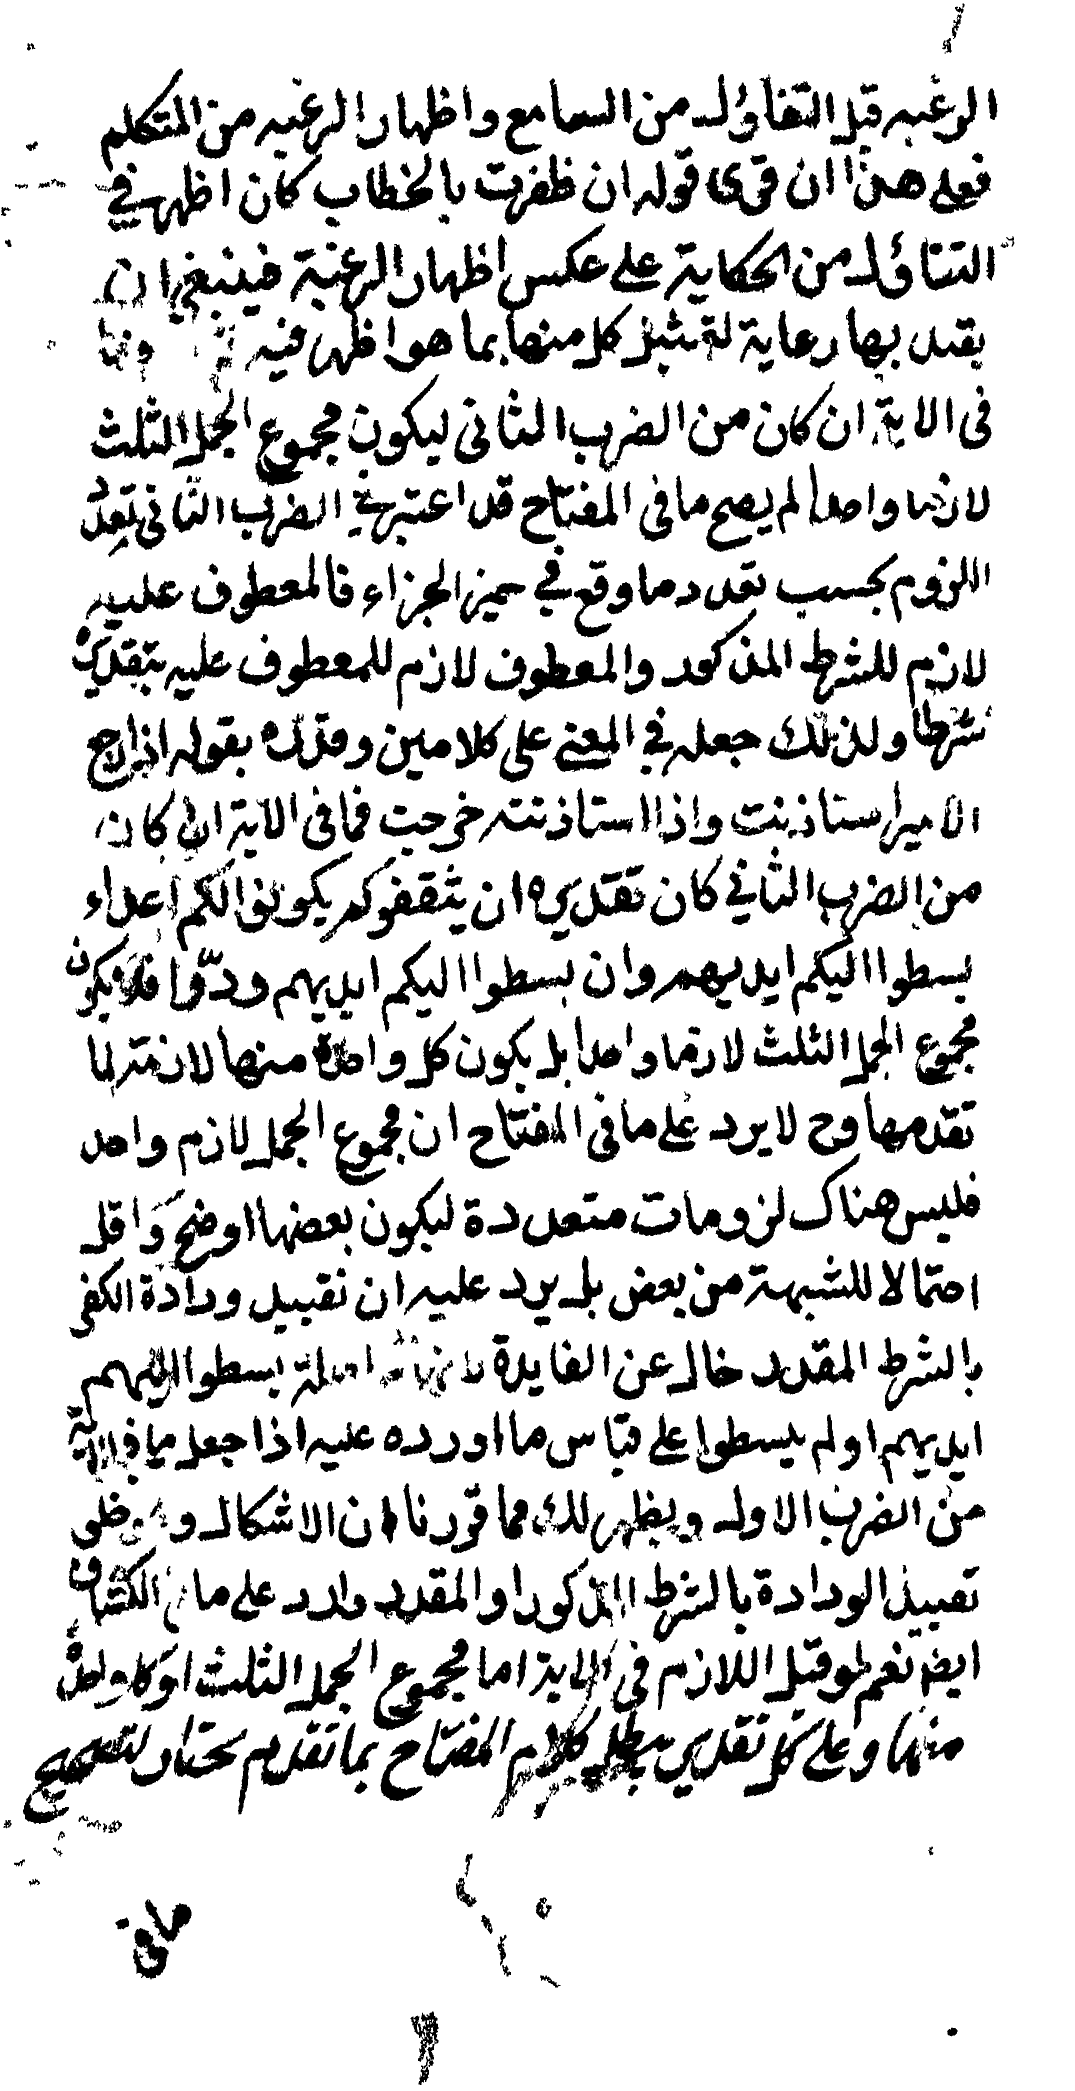 الرغبه قيل التفاؤل من السامع واظهار الرغبه من المتكلم
فعلى هذا ان قرى قوله ان ظفرت بالخطاب كان اظهر في
التفاؤل من الحكاية على عكس اظهار الرغبة فينبغي ان
يقدر بها رعاية لتمثيل كل منهما بما هو اظهر فيه
فى الاية ان كان من الضرب الثانى ليكون مجموع الجمل الثلث
لازما واحدا لم يصح ما فى المفتاح قد اعتبر في الضرب الثانى تعدد
اللزوم بحسب تعدد ما وقع في حيز الجزاء فالمعطوف عليه
لازم للشرط المذكور والمعطوف لازم للمعطوف عليه بتقديره
شرطا ولذلك جعله في المعنى على كلامين وقدره بقوله اذا رجع
الامير استاذنت واذا استاذنته خرجت فما فى الآية ان كان
من الضرب الثاني كان تقديره ان يثقفوكم يكونوا لكم اعداء
يبسطوا اليكم ايديهم وان بسطوا اليكم ايديهم ودّوا فلا يكون
مجموع الجمل الثلث لازما واحدا بل يكون كل واحدة منها لازمة لما
تقدمها وح لا يرد على ما فى المفتاح ان مجموع الجمل لازم واحد
فليس هناك لزومات متعددة ليكون بعضها اوضح واقل
احتمالا للشبهة من بعض بل يرد عليه ان تقييد ودادة الكفر
بالشرط المقدر خال عن الفايدة حاصلة بسطوا اليهم
ايديهم او لم يبسطوا على قياس ما اورده عليه اذا جعل ما في الآية
من الضرب الاول ويظهر لك مما قررنا ان الاشكال
تقييد الودادة بالشرط المذكور او المقدر وارد على ما في الكشاف
ايضا نعم لو قيل اللازم فى الاية اما مجموع الجمل الثلث او كل واحدة
منها وعلى كل تقدير يبطل كلام المفتاح بما تقدم يحتار لتصحيح